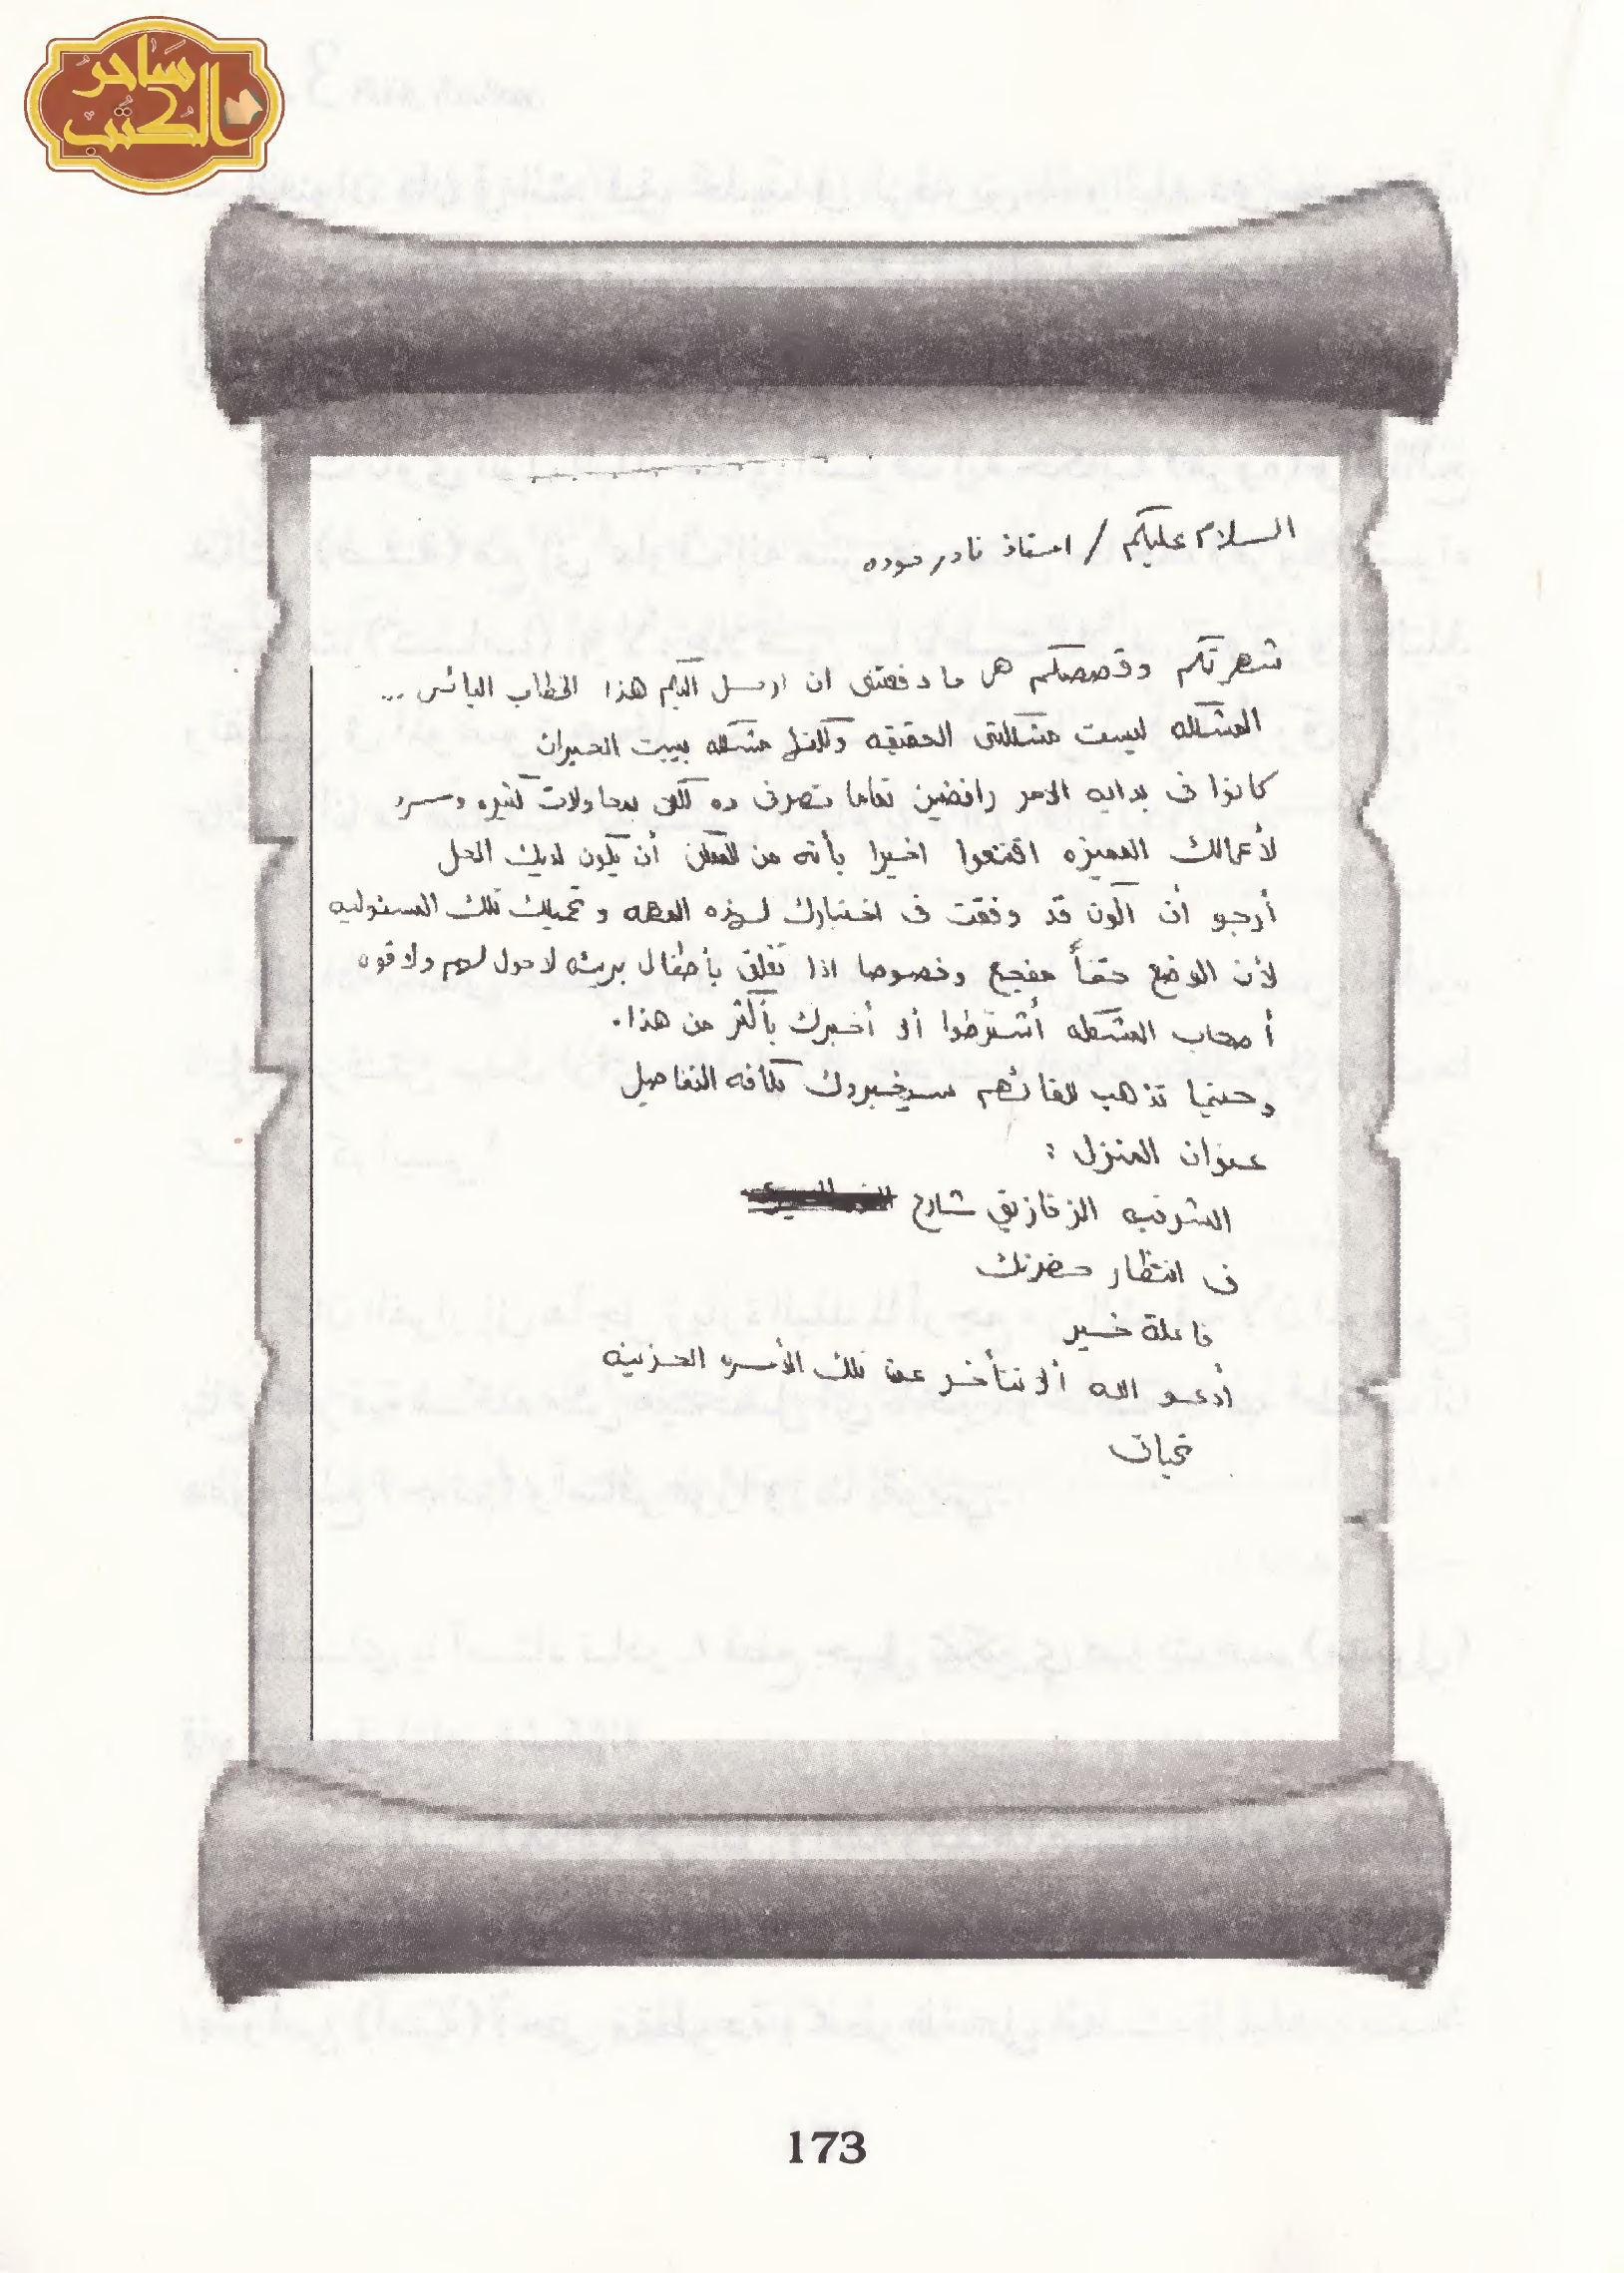 ساحر الكتب
السلام عليكم / استاذ نادر فوده
شهرتكم وقصصكم هى ما دفعتنى ان ارسل اليكم هذا الخطاب اليائس ...
المشكله ليست مشكلتى الحقيقه ولكنها مشكله ببيت الجيران
كانوا فى بدايه الامر رافضين تماما تصرفى ده لكن بمحاولات كثيره وسرد
لأعمالك المميزه اقتنعوا اخيرا بأنه من الممكن أن يكون لديك الحل
أرجو ان اكون قد وفقت فى اختيارك لهذه المهمه وتحميلك تلك المسئوليه
لأن الوضع حقاً مفجع وخصوصا اذا تعلق بأطفال بريئه لا حول لهم ولا قوه
أصحاب المشكله أشترطوا ألا أخبرك بأكثر من هذا.
وحينما تذهب للقائهم سيخبروك بكافه التفاصيل
عنوان المنزل :
الشرقيه الزقازيق شارع
فى انتظار حضرتك
فاعلة خير
أدعو الله ألا تتأخر عن تلك الأسره الحزينه
تحياتى
173